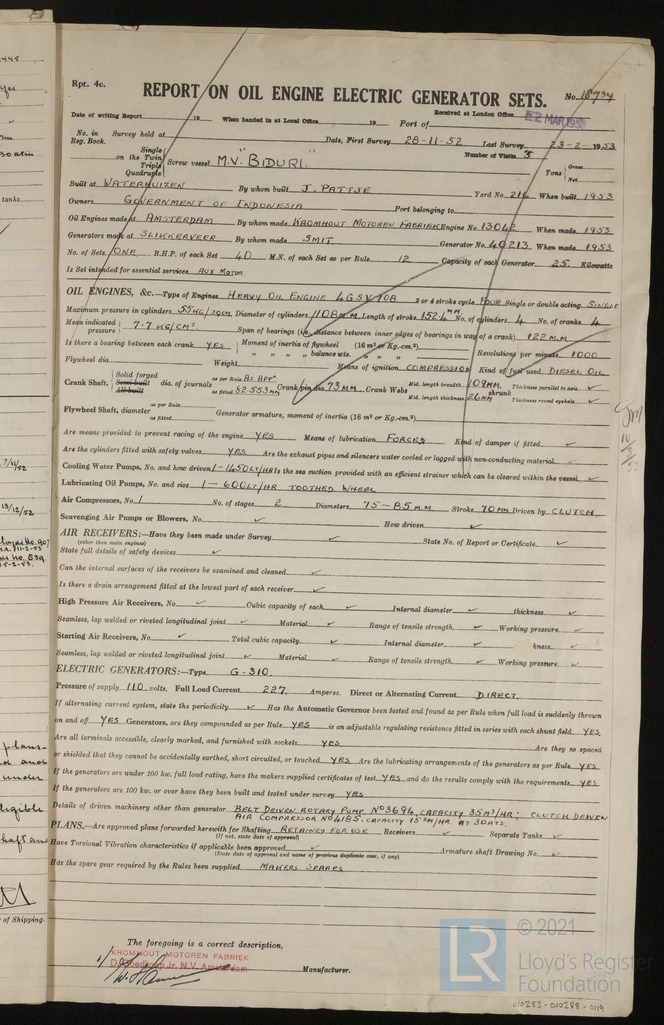 Rpt. 4c.
REPORT ON OIL ENGINE ELECTRIC GENERATOR SETS.
No. 18734
Received at London Office
22 MAR 1953
Date of writing Report 19 When handed in at Local Office 19 Port of
No. in Reg. Book. Survey held at Date, First Survey 28-11-52 Last Survey 23-2-1953
Number of Visits 3
on the Single Twin Triple Quadruple Screw vessel M.V. "BIDURI" Tons Gross Net
Built at WATERHUIZEN By whom built J. PATTJE Yard No. 216 When built 1953
Owners GOVERNMENT OF INDONESIA Port belonging to
Oil Engines made at AMSTERDAM By whom made KROMHOUT MOTOREN FABRIEK Engine No. 13042 When made 1953
Generators made at SLIKKERVEER By whom made SMIT Generator No. 40213 When made 1953
No. of Sets ONE B.H.P. of each Set 40 M.N. of each Set as per Rule 12 Capacity of each Generator 25 Kilowatts
Is Set intended for essential services AUX MOTOR
OIL ENGINES, &c.—Type of Engines HEAVY OIL ENGINE 4GSV10B 2 or 4 stroke cycle FOUR Single or double acting SINGLE
Maximum pressure in cylinders 55 KG/CM² Diameter of cylinders 110 M.M. Length of stroke 152.4 MM No. of cylinders 4 No. of cranks 4
Mean indicated pressure 7.7 KG/CM² Span of bearings (i.e. distance between inner edges of bearings in way of a crank) 122 M.M
Is there a bearing between each crank YES Moment of inertia of flywheel (16 m² or Kg.-cm².)
" " " balance wts. " " " Revolutions per minute 1000
Flywheel dia. Weight Means of ignition COMPRESSION Kind of fuel used DIESEL OIL
Crank Shaft, Solid forged Semi-built All-built dia. of journals as per Rule AS APP as fitted 82.553 MM Crank pin dia. 73 MM Crank Webs Mid. length breadth 109 MM Mid. length thickness 26 MM shrunk Thickness parallel to axis ✓ Thickness round eyeholes ✓
Flywheel Shaft, diameter as per Rule as fitted Generator armature, moment of inertia (16 m² or Kg.-cm².)
Are means provided to prevent racing of the engine YES Means of lubrication FORCED Kind of damper if fitted ✓
Are the cylinders fitted with safety valves YES Are the exhaust pipes and silencers water cooled or lagged with non-conducting material ✓
Cooling Water Pumps, No. and how driven 1-1450 LT/HR Is the sea suction provided with an efficient strainer which can be cleared within the vessel ✓
Lubricating Oil Pumps, No. and size 1 - 600 LT/HR TOOTHED WHEEL
Air Compressors, No. 1 No. of stages 2 Diameters 75-85 M.M Stroke 70 MM Driven by CLUTCH
Scavenging Air Pumps or Blowers, No. ✓ How driven ✓
AIR RECEIVERS:—Have they been made under Survey ✓ State No. of Report or Certificate ✓
(other than main engines)
State full details of safety devices ✓
Can the internal surfaces of the receivers be examined and cleaned ✓
Is there a drain arrangement fitted at the lowest part of each receiver ✓
High Pressure Air Receivers, No. ✓ Cubic capacity of each ✓ Internal diameter ✓ thickness ✓
Seamless, lap welded or riveted longitudinal joint ✓ Material ✓ Range of tensile strength ✓ Working pressure ✓
Starting Air Receivers, No. ✓ Total cubic capacity ✓ Internal diameter ✓ kness ✓
Seamless, lap welded or riveted longitudinal joint ✓ Material ✓ Range of tensile strength ✓ Working pressure ✓
ELECTRIC GENERATORS:—Type G-310.
Pressure of supply 110 volts. Full Load Current 227. Amperes. Direct or Alternating Current DIRECT.
If alternating current system, state the periodicity ✓ Has the Automatic Governor been tested and found as per Rule when full load is suddenly thrown
on and off YES Generators, are they compounded as per Rule YES is an adjustable regulating resistance fitted in series with each shunt field YES
Are all terminals accessible, clearly marked, and furnished with sockets YES Are they so spaced
or shielded that they cannot be accidentally earthed, short circuited, or touched YES Are the lubricating arrangements of the generators as per Rule YES
If the generators are under 100 kw. full load rating, have the makers supplied certificates of test YES and do the results comply with the requirements YES
If the generators are 100 kw. or over have they been built and tested under survey YES
Details of driven machinery other than generator BELT DRIVEN ROTARY PUMP No 3694, CAPACITY 35 M³/HR; CLUTCH DRIVEN
AIR COMPRESSOR No 4185. CAPACITY 15 M³/HR AT 30 ATS
PLANS.—Are approved plans forwarded herewith for Shafting RETAINED FOR USE Receivers ✓ Separate Tanks ✓
(If not, state date of approval)
Have Torsional Vibration characteristics if applicable been approved ✓ Armature shaft Drawing No. ✓
(State date of approval and name of previous duplicate case, if any)
Has the spare gear required by the Rules been supplied MAKERS SPARES
The foregoing is a correct description,
KROMHOUT MOTOREN FABRIEK
D. Goedkoop Jr. N.V. Amsterdam
Manufacturer.
tanks
7/11/52
13/12/52
plans-
and
under
haft and
of Shipping.
LR
© 2021
Lloyd's Register
Foundation
010283-010288-0119